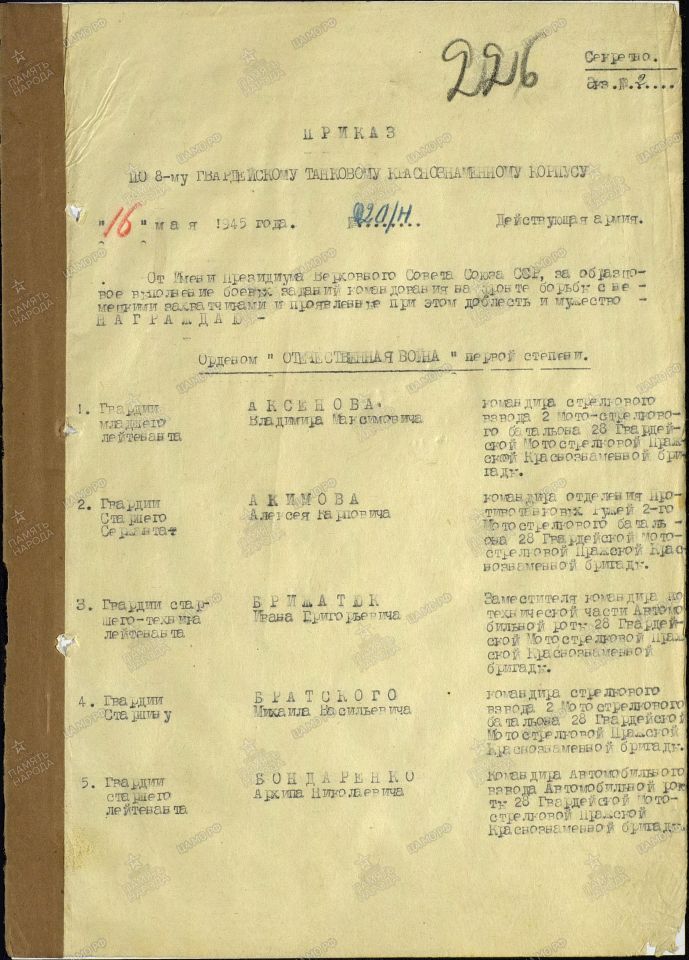 226
Секретно.
Экз.№.2....
ПРИКАЗ
ПО 8-му ГВАРДЕЙСКОМУ ТАНКОВОМУ КРАСНОЗНАМЕННОМУ КОРПУСУ
"16" мая 1945 года. №020/н Действующая армия.
От Имени Президиума Верховного Совета Союза ССР, за образцо-
вое выполнение боевых заданий командования на фронте борьбы с не-
мецкими захватчиками и проявленные при этом доблесть и мужество -
НАГРАЖДАЮ-
Орденом " ОТЕЧЕСТВЕННАЯ ВОЙНА " первой степени.
1. Гвардии
младшего
лейтенанта
АКСЕНОВА.
Владимира Максимовича
командира стрелкового
взвода 2 Мото-стрелково-
го батальона 28 Гвардей-
ской Мотострелковой Праж-
ской Краснознаменной бри-
гады.
2. Гвардии
Старшего
Сержанта
АКИМОВА
Алексея Карповича
командира отделения Про-
тивотанковых Ружей 2-го
Мотострелкового баталь -
она 28 Гвардейской Мото-
стрелковой Пражской Крас-
нознаменной бригады.
3. Гвардии стар-
шего-техника
лейтенанта
БРИЖАТЮК
Ивана Григорьевича
Заместителя командира по
технической части Автомо-
бильной роты 28 Гвардей-
ской Мотострелковой Праж
ской Краснознаменной
бригады.
4. Гвардии
Старшину
БРАТСКОГО
Михаила Васильевича
командира стрелкового
взвода 2 Мотострелкового
батальона 28 Гвардейской
Мотострелковой Пражской
Краснознаменной бригады.
5. Гвардии
старшего
лейтенанта
БОНДАРЕНКО
Архипа Николаевича
Командира Автомобильного
взвода Автомобильной ро-
ты 28 Гвардейской Мото-
стрелковой Пражской
Краснознаменной бригады.
ПАМЯТЬ
НАРОДА
ЦАМО.РФ